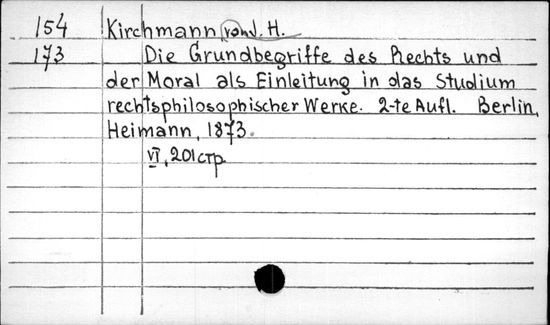 154 Kirchmann von J. H.
173 Die Grundbegriffe des Rechts und
der Moral als Einleitung in das Studium
rechtsphilosophischer Werke. 2-te Aufl. Berlin,
Heimann, 1873.
VI, 201 стр.